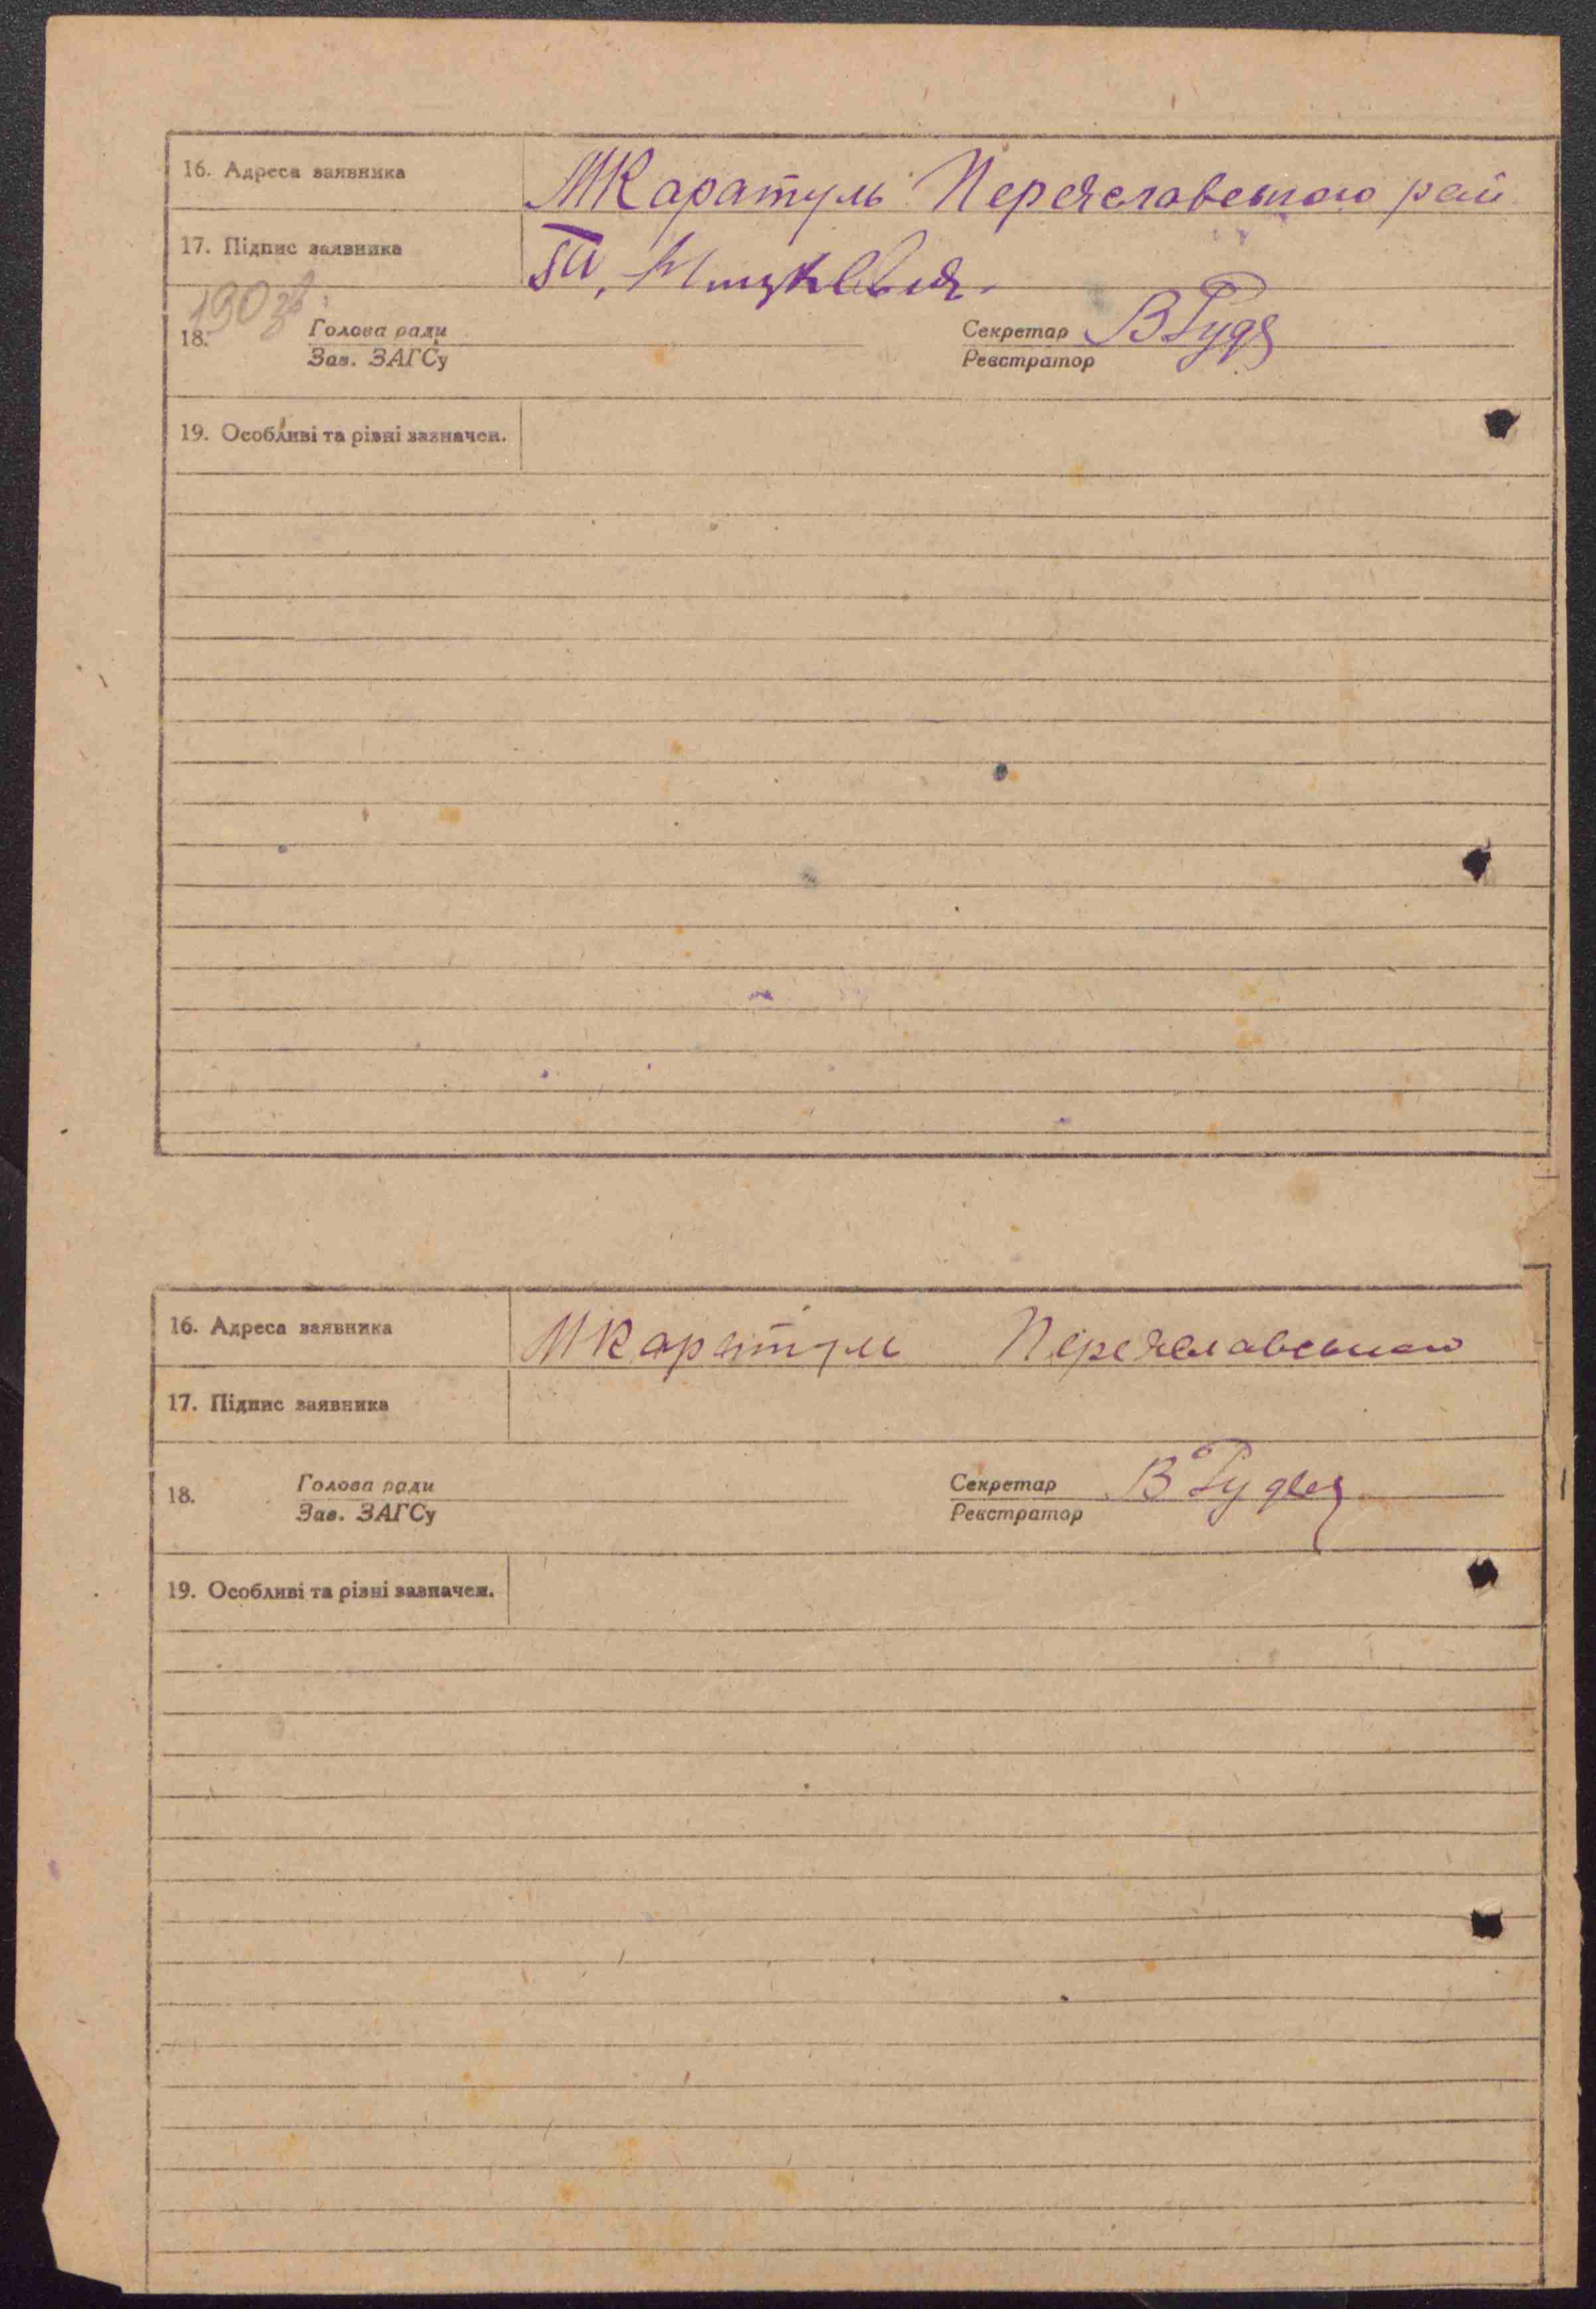 16. Адреса заявника МКаратуль Переяславського рай
17. Підпис заявника
190зв
18. Голова ради Секретар В Руд
Зав. ЗАГСу Реєстратор
19. Особливі та різні зазначен.
16. Адреса заявника МКаратуль Переяславського
17. Підпис заявника
18. Голова ради Секретар В Руд
Зав. ЗАГСу Реєстратор
19. Особливі та різні зазначен.